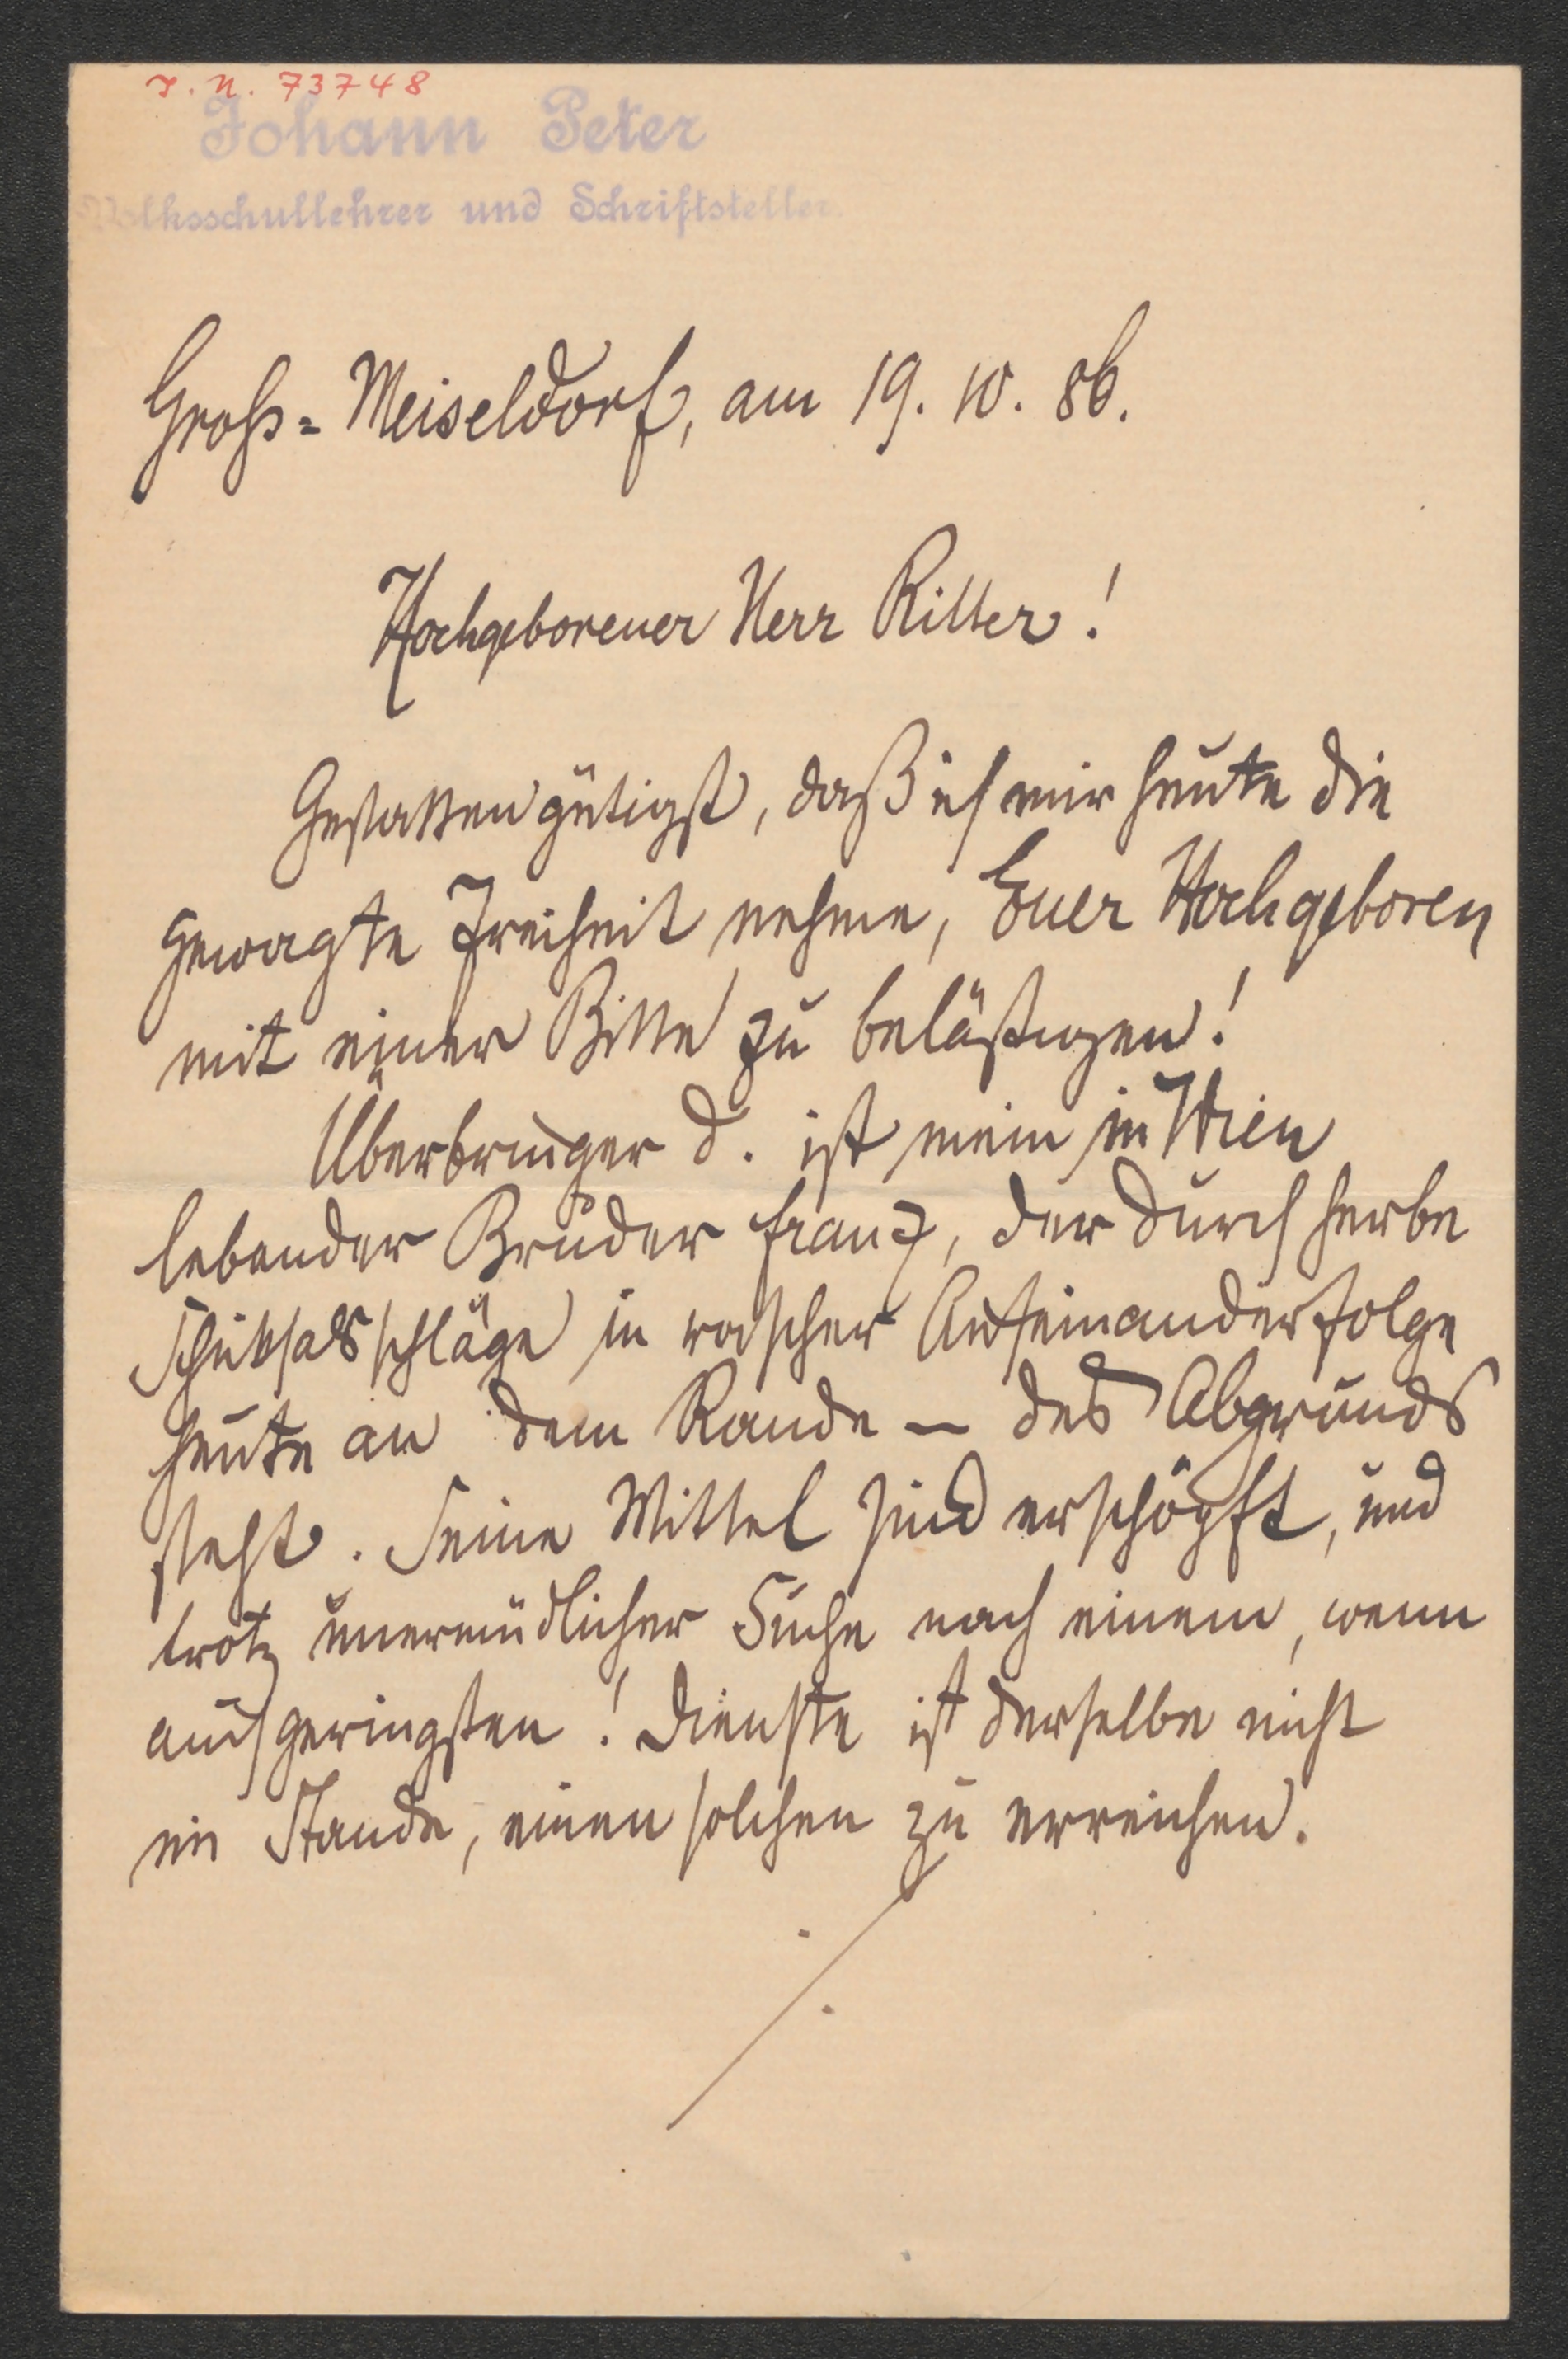 J. N. 73748
Johann Peter
Volksschullehrer und Schriftsteller.
Groß=Meiseldorf, am 19. 10. 86.
Hochgeborener Herr Ritter!
Gestatten gütigst, daß ich mir heute die
gewagte Freiheit nehme, Euer Hochgeboren
mit einer Bitte zu belästigen!
Überbringer d. ist mein in Wien
lebender Bruder Franz, der durch herbe
Schiksalsschläge in rascher Aufeinanderfolge
heute an dem Rande – des Abgrunds
steht. Seine Mittel sind erschöpft, und
trotz unermüdlicher Suche nach einem, wenn
auch geringsten! Dienste ist derselbe nicht
im Stande, einen solchen zu erreichen.